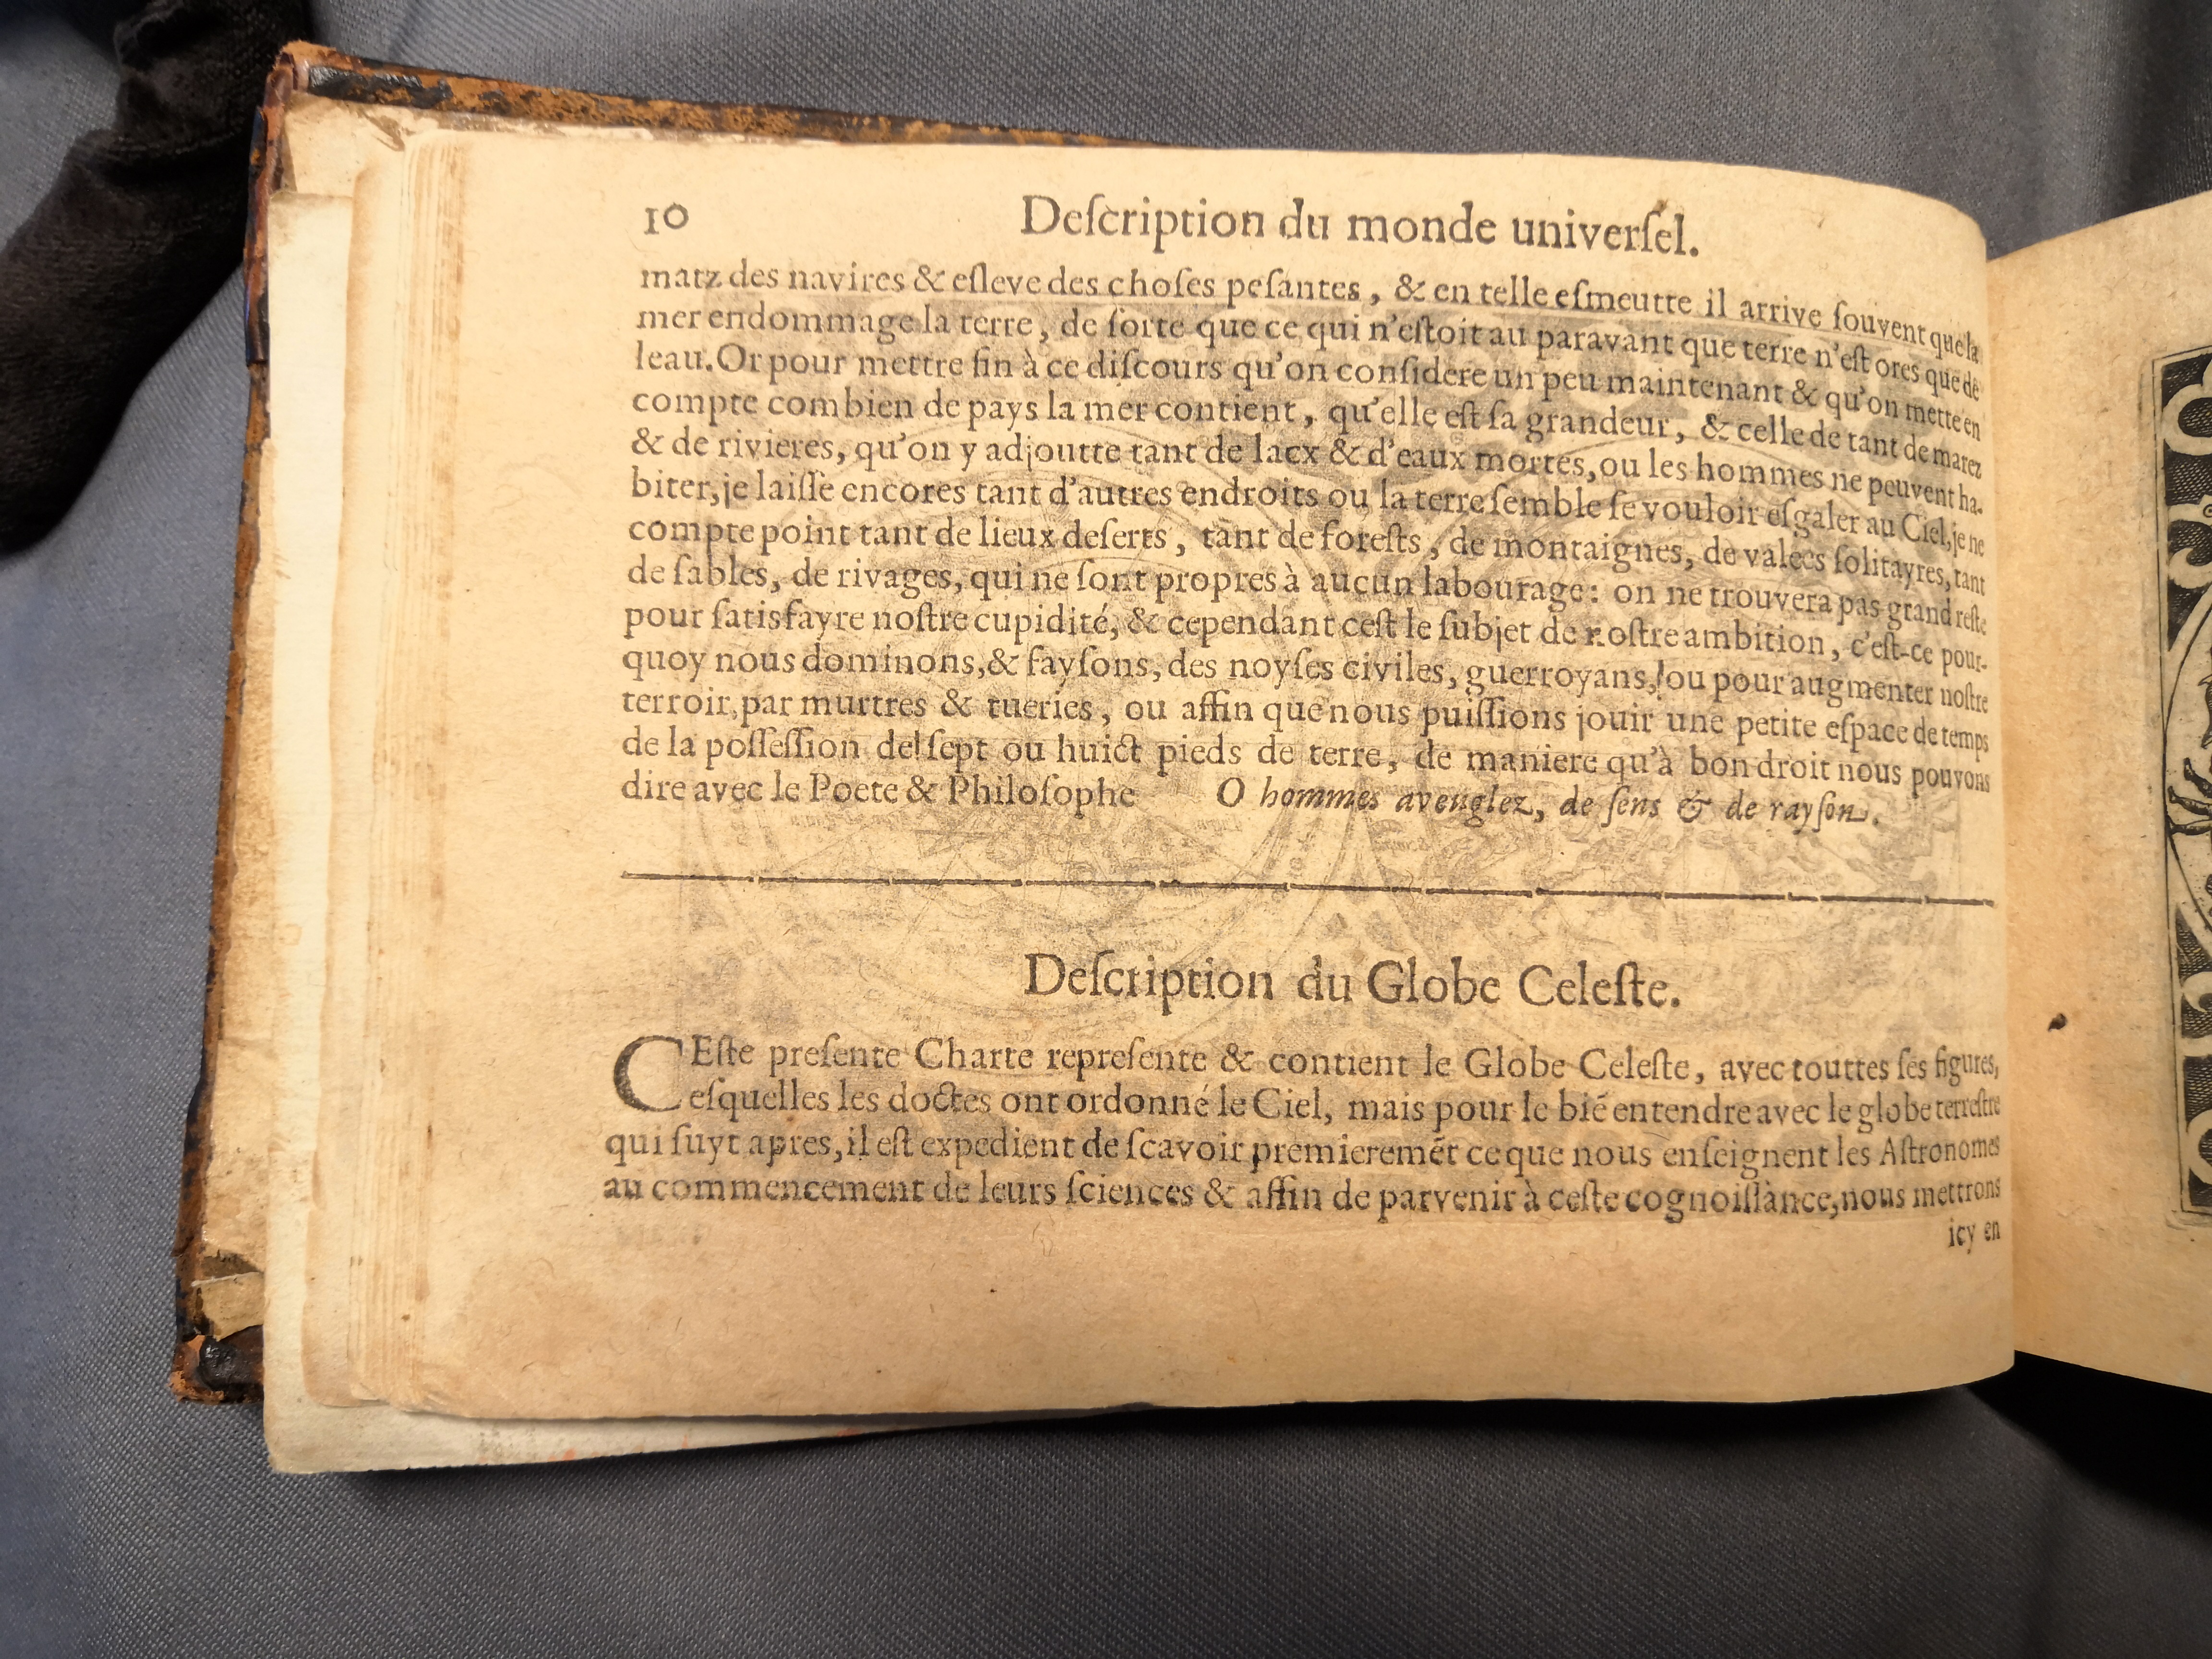 10 Deſcription du monde univerſel.
matz des navires & eſleve des choſes peſantes, & en telle eſmeutte il arrive ſouvent que la
mer endommage la terre, de ſorte que ce qui n'eſtoit au paravant que terre n'eſt ores que de
leau. Or pour mettre fin à ce diſcours qu'on conſidere un peu maintenant & qu'on mette en
compte combien de pays la mer contient, qu'elle eſt ſa grandeur, & celle de tant de marez
& de rivieres, qu'on y adjoutte tant de lacx & d'eaux mortes, ou les hommes ne peuvent ha-
biter, je laiſſe encores tant d'autres endroits ou la terre ſemble ſe vouloir eſgaler au Ciel, je ne
compte point tant de lieux deſerts, tant de foreſts, de montaignes, de valees ſolitayres, tant
de ſables, de rivages, qui ne ſont propres à aucun labourage: on ne trouvera pas grand reſte
pour ſatisfayre noſtre cupidité, & cependant ceſt le ſubjet de noſtre ambition, c'eſt-ce pour-
quoy nous dominons, & fayſons, des noyſes civiles, guerroyans, ou pour augmenter noſtre
terroir, par murtres & tueries, ou affin que nous puiſſions jouir une petite eſpace de temps
de la poſſeſſion de ſept ou huict pieds de terre, de maniere qu'à bon droit nous pouvons
dire avec le Poete & Philoſophe O hommes aveuglez, de ſens & de rayſon.
Deſcription du Globe Celeſte.
CEſte preſente Charte repreſente & contient le Globe Celeſte, avec touttes ſes figures,
eſquelles les doctes ont ordonné le Ciel, mais pour le bié entendre avec le globe terreſtre
qui ſuyt apres, il eſt expedient de ſcavoir premieremẽt ce que nous enſeignent les Aſtronomes
au commencement de leurs ſciences & affin de parvenir à ceſte cognoiſſànce, nous mettrons
icy en